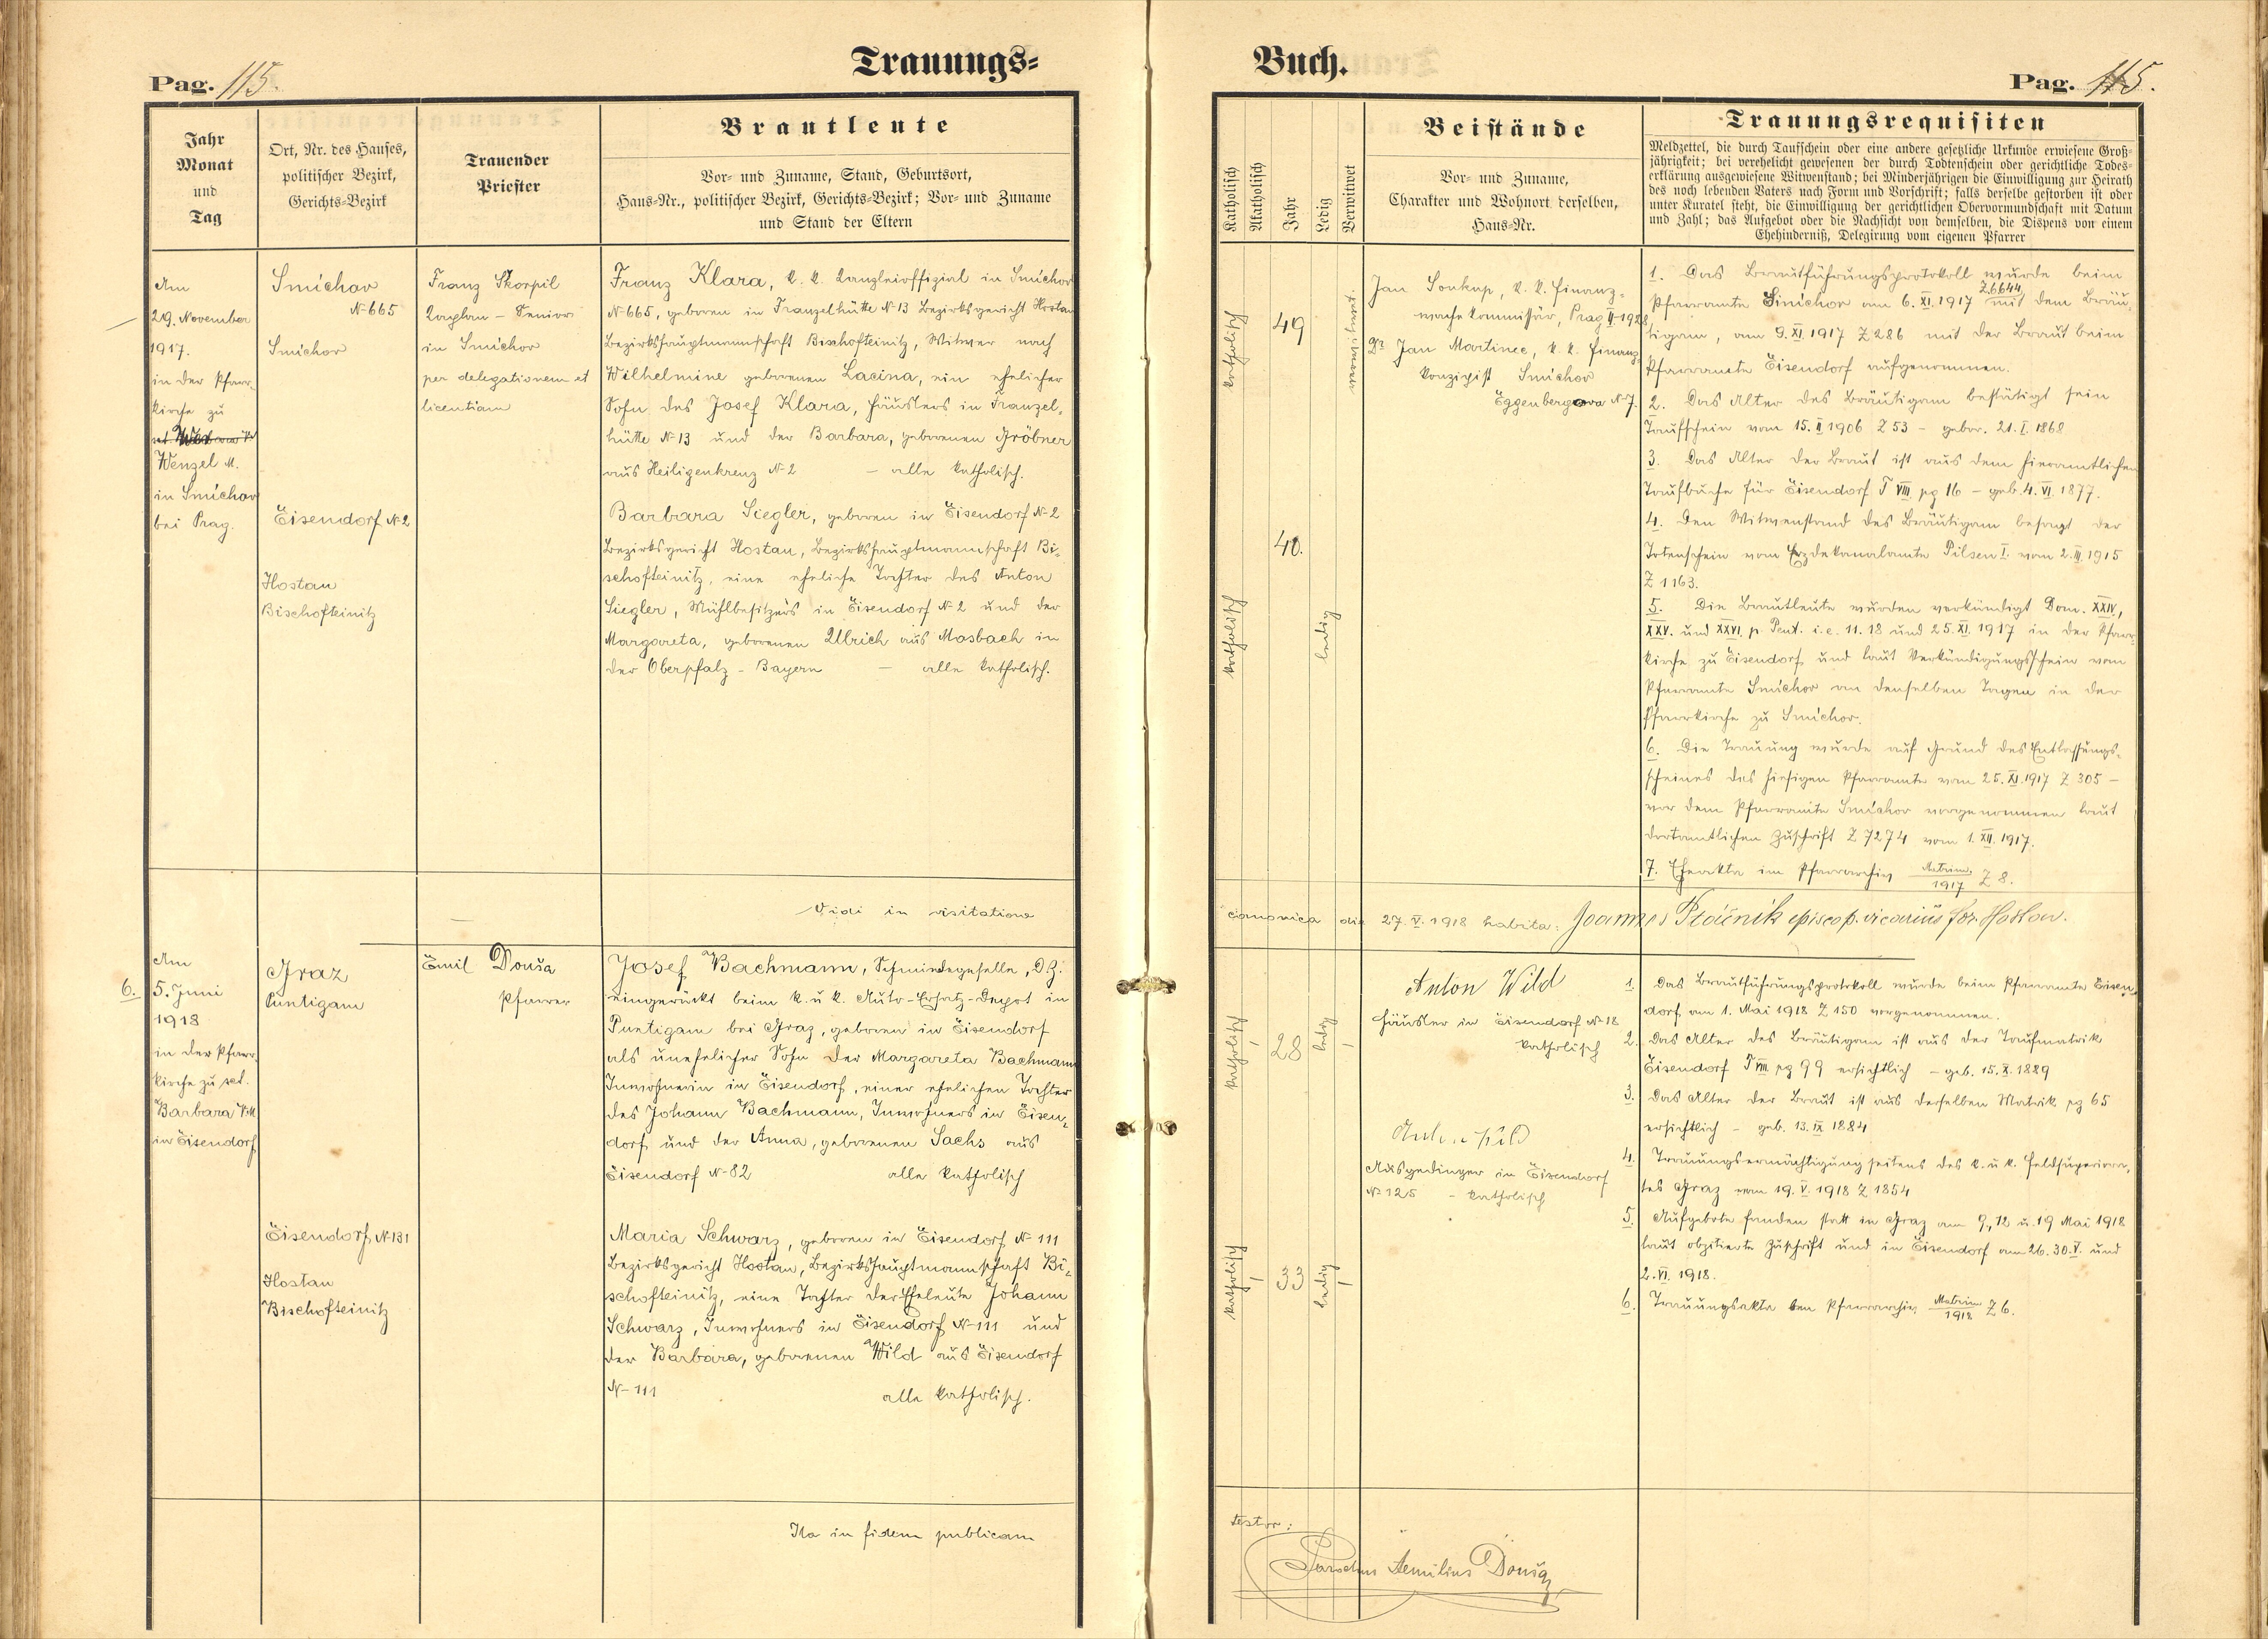 Trauungs=
Buch.
Pag. 115.
Pag. 115.
Jahr
Monat
und
Tag
Ort, Nr. des Hauses,
politischer Bezirk,
Gerichts-Bezirk
Trauender
Priester
Brautleute
Vor- und Zuname, Stand, Geburtsort,
Haus-Nr., politischer Bezirk, Gerichts-Bezirk; Vor- und Zuname
und Stand der Eltern
Katholisch
Akatholisch
Jahr
Ledig
Verwitwet
Beistände
Vor- und Zuname,
Charakter und Wohnort derselben,
Haus-Nr.
Trauungsrequisiten
Meldzettel, die durch Taufschein oder eine andere gesetzliche Urkunde erwiesene Groß-
jährigkeit; bei verehelicht gewesenen der durch Todtenschein oder gerichtliche Todes-
erklärung ausgewiesene Witwenstand; bei Minderjährigen die Einwilligung zur Heirath
des noch lebenden Vaters nach Form und Vorschrift; falls derselbe gestorben ist oder
unter Kuratel steht, die Einwilligung der gerichtlichen Obervormundschaft mit Datum
und Zahl; das Aufgebot oder die Nachsicht von demselben, die Dispens von einem
Ehehinderniß, Delegirung vom eigenen Pfarrer
Am
29. November
1917.
in der Pfarr-
kirche zu
Wenzel M.
in Smíchov
bei Prag.
Smíchov
N 665
Smíchov
Eisendorf N 2
Hostau
Bischofteinitz
Franz Škorpil
Kaplan - Senior
in Smíchov
per delegationem et
licentiam
Franz Klara, k. k. Kanzleioffizial in Smíchov
N 665, geboren in Franzelhütte N 13 Bezirksgericht Hostau
Bezirkshauptmannschaft Bischofteinitz, Witwer nach
Wilhelmine geborenen Lacina, ein ehelicher
Sohn des Josef Klara, Häuslers in Franzel-
hütte N 13 und der Barbara, geborenen Gröbner
aus Heiligenkreuz N 2 - alle katholisch.
Barbara Siegler, geboren in Eisendorf N 2
Bezirksgericht Hostau, Bezirkshauptmannschaft Bi-
schofteinitz, eine eheliche Tochter des Anton
Siegler, Mühlbesitzers in Eisendorf N 2 und der
Margareta, geborenen Ullrich aus Mosbach in
der Oberpfalz - Bayern - alle katholisch.
katholisch
49
verwitwet.
katholisch
40.
ledig
Jan Soukup, k. k. Finanz-
wache Kommissär, Prag II-1928,
Dr Jan Martinec, k. k. Finanz-
konzipist Smíchov
Eggenbergova N 7.
1. Das Brautführungsprotokoll wurde beim
Pfarramte Smíchov am 6. XI. 1917 Z.6644 mit dem Bräu-
tigam, am 9. XI 1917 Z 286 mit der Braut beim
Pfarramte Eisendorf aufgenommen.
2. Das Alter des Bräutigam bestätigt sein
Taufschein vom 15. II 1906 Z 53 - gebor. 21. I. 1868
3. Das Alter der Braut ist aus dem hieramtlichen
Taufbuche für Eisendorf T VIII pg 16 - geb. 4. VI. 1877.
4. Den Witwenstand des Bräutigam besagt der
Totenschein vom Erzdekanalamte Pilsen I. vom 2. III. 1915
Z 1163.
5. Die Brautleute wurden verkündigt Dom. XXIV,
XXV. und XXVI. p. Pent. i. e. 11. 18 und 25. XI. 1917 in der Pfarr-
kirche zu Eisendorf und laut Verkündigungsschein vom
Pfarramte Smíchov an denselben Tagen in der
Pfarrkirche zu Smíchov.
6. Die Trauung wurde auf Grund des Entlassungs-
scheines des hiesigen Pfarramte vom 25. XI. 1917 Z 305 -
vor dem Pfarramte Smíchov vorgenommen laut
dortamtlichen Zuschrift Z 7274 vom 1. XII. 1917.
7. Eheakta im Pfarrarchiv Matrim. 1917 Z 8.
Vidi in visitatione canonica die 27. V. 1918 habita: Joannes Ptáčník episcop. vicarius for. Hostau.
6.
Am
5. Juni
1918
in der Pfarr-
kirche zu sct.
Barbara V.M.
in Eisendorf
Graz
Puntigam
Eisendorf N 131
Hostau
Bischofteinitz
Emil Douša
Pfarrer
Josef Bachmann, Schmiedegeselle, DZ.
eingerückt beim k. u. k. Auto-Ersatz-Depot in
Puntigam bei Graz, geboren in Eisendorf
als unehelicher Sohn der Margareta Bachmann
Inwohnerin in Eisendorf, einer ehelichen Tochter
des Johann Bachmann, Inwohners in Eisen-
dorf und der Anna, geborenen Sachs aus
Eisendorf N 82 alle katholisch
Maria Schwarz, geboren in Eisendorf N 111
Bezirksgericht Hostau, Bezirkshauptmannschaft Bi-
schofteinitz, eine Tochter der Eheleute Johann
Schwarz, Inwohners in Eisendorf N 111 und
der Barbara, geborenen Wild aus Eisendorf
N 111 alle katholisch.
katholisch
28
ledig
katholisch
33
ledig
Anton Wild
Häusler in Eisendorf N 18
katholisch
Ausgedinger in Eisendorf
N 125 - katholisch
1. Das Brautführungsprotokoll wurde beim Pfarramte Eisen-
dorf am 1. Mai 1918 Z 150 vorgenommen.
2. Das Alter des Bräutigam ist aus der Taufmatrik
Eisendorf T VIII pg 99 ersichtlich - geb. 15. X. 1889
3. Das Alter der Braut ist aus derselben Matrik pg 65
ersichtlich - geb. 13. IX 1884
4. Trauungsermächtigung seitens des k. u. k. Feldsuperiora-
tes Graz vom 19. V. 1918 Z 1854
5. Aufgebote fanden statt in Graz am 9., 12 u. 19 Mai 1918
laut obzitierte Zuschrift und in Eisendorf am 26. 30. V. und
2. VI. 1918.
6. Trauungsakta Pfarrarchiv Matrim 1918 Z 6.
Ita in fidem publicam testor:
Parochus Aemilius Douša